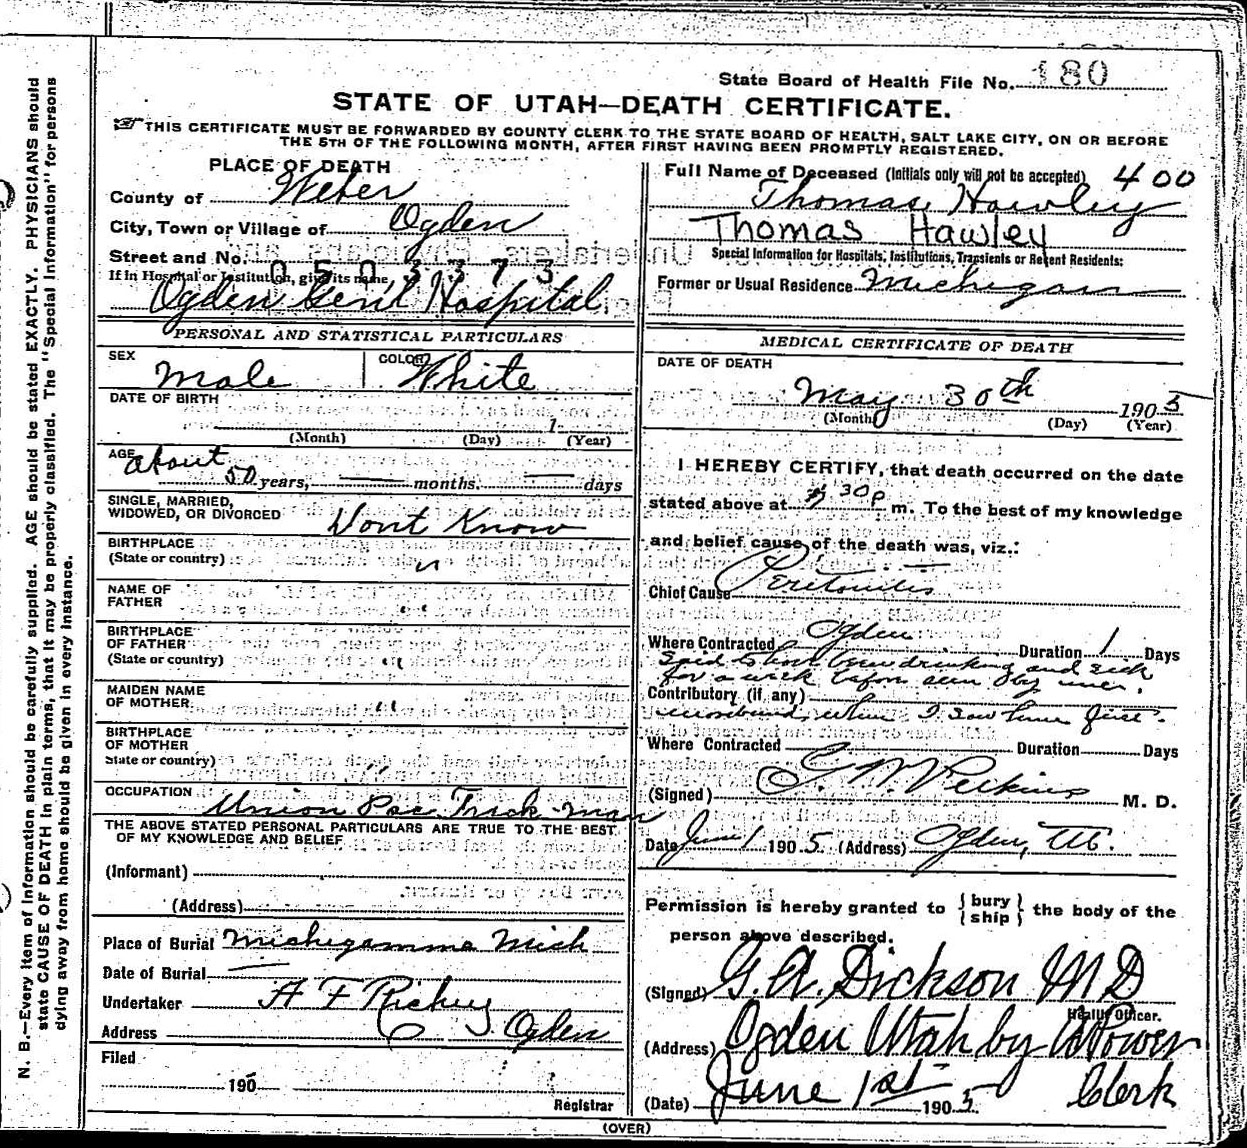 State Board of Health File No. 180
STATE OF UTAH—DEATH CERTIFICATE.
THIS CERTIFICATE MUST BE FORWARDED BY COUNTY CLERK TO THE STATE BOARD OF HEALTH, SALT LAKE CITY, ON OR BEFORE
THE 5TH OF THE FOLLOWING MONTH, AFTER FIRST HAVING BEEN PROMPTLY REGISTERED.
PLACE OF DEATH
County of Weber
City, Town or Village of Ogden
Street and No.
0503373
If in Hospital or Institution, give its name
Ogden Genl Hospital
PERSONAL AND STATISTICAL PARTICULARS
SEX Male COLOR White
DATE OF BIRTH
1
(Month) (Day) (Year)
AGE about
50 years, months. days
SINGLE, MARRIED,
WIDOWED, OR DIVORCED Dont Know
BIRTHPLACE
(State or country) "
NAME OF
FATHER "
BIRTHPLACE
OF FATHER
(State or country) "
MAIDEN NAME
OF MOTHER "
BIRTHPLACE
OF MOTHER
State or country) "
OCCUPATION Union Pac Track-man
THE ABOVE STATED PERSONAL PARTICULARS ARE TRUE TO THE BEST
OF MY KNOWLEDGE AND BELIEF
(Informant)
(Address)
Place of Burial Michigamme Mich
Date of Burial
Undertaker A F Richey
Address Ogden
Filed
190
Registrar
Full Name of Deceased (Initials only will not be accepted) 400
Thomas Hawley
Thomas Hawley
Special Information for Hospitals, Institutions, Transients or Recent Residents:
Former or Usual Residence Michigan
MEDICAL CERTIFICATE OF DEATH
DATE OF DEATH
May 30th 1905
(Month) (Day) (Year)
I HEREBY CERTIFY, that death occurred on the date
stated above at 30p m. To the best of my knowledge
and belief cause of the death was, viz.:
Chief Cause Peritonitis
Where Contracted Ogden Duration 1 Days
Said to have been drinking and sick
for a week before seen by me.
Contributory (if any)
when I saw him first.
Where Contracted Duration Days
(Signed) G. M. Perkins M. D.
Date June 1 1905. (Address) Ogden, Ut.
Permission is hereby granted to {bury ship} the body of the
person above described.
(Signed) G. A. Dickson MD
Health Officer.
(Address) Ogden Utah by Power
Clerk
(Date) June 1st 1905.
(OVER)
N. B.—Every item of information should be carefully supplied. AGE should be stated EXACTLY. PHYSICIANS should
state CAUSE OF DEATH in plain terms, that it may be properly classified. The "Special Information" for persons
dying away from home should be given in every instance.